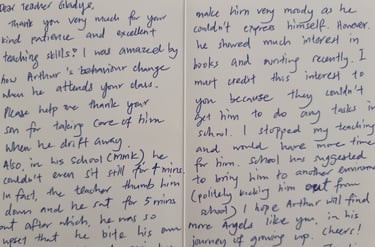 Dear Teacher Gladys,
Thank you very much for your
kind patience and excellent
teaching skills! I was amazed by
how Arthur's behaviour change
when he attends your class.
Please help me thank your
son for taking care of him
when he drift away.
Also, in his school (mmk) he
couldn't even sit still for 4 mins.
In fact, the teacher thumb him
down and he sat for 5 mins
out after which, he was so
upset that he bite his own
make him very moody as he
couldn't express himself. However,
he showed much interest in
books and writing recently. I
must credit this interest to
you because they couldn't
get him to do any tasks in
school. I stopped my teaching
and would have more time
for him. School has suggested
to bring him to another environm
(politely kicking him out from
school) I hope Arthur will find
more Angels like you, in his
journey of growing up. Cheers!